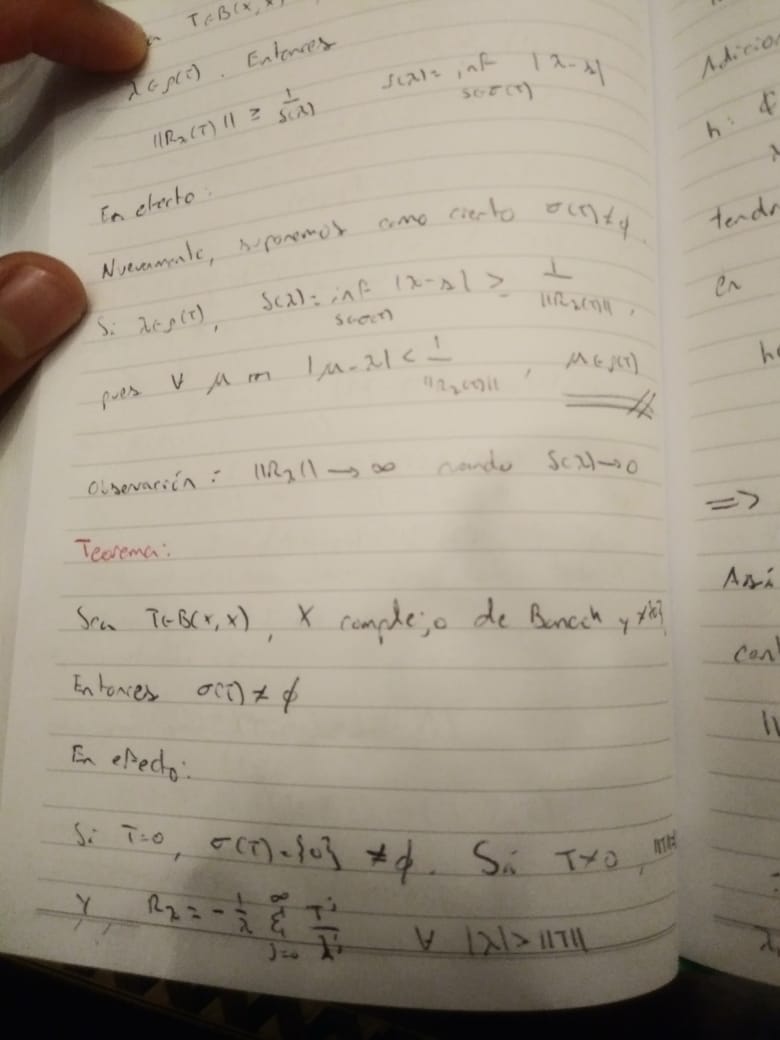 T∈B(X,X)
λ∈ρ(T). Entonces
||R_λ(T)|| ≥ 1/S(λ)   S(λ)= inf_{s∈σ(T)} |λ-s|
En efecto:
Nuevamente, suponemos como cierto σ(T)≠φ.
Si λ∈ρ(T), S(λ)= inf_{s∈σ(T)} |λ-s| ≥ 1/||R_λ(T)||,
pues ∀ μ con |μ-λ| < 1/||R_λ(T)||, μ∈ρ(T)
Observación: ||R_λ|| → ∞ cuando S(λ)→0
Teorema:
Sea T∈B(X,X), X complejo de Banach y ≠{0}
Entonces σ(T) ≠ φ
En efecto:
Si T=0, σ(T)={0} ≠ φ. Si T≠0,
Y R_λ = -1/λ Σ_{j=0}^∞ T^j/λ^j ∀ |λ|>||T||
Adicion
h: ₵
tendr
en
=>
Así